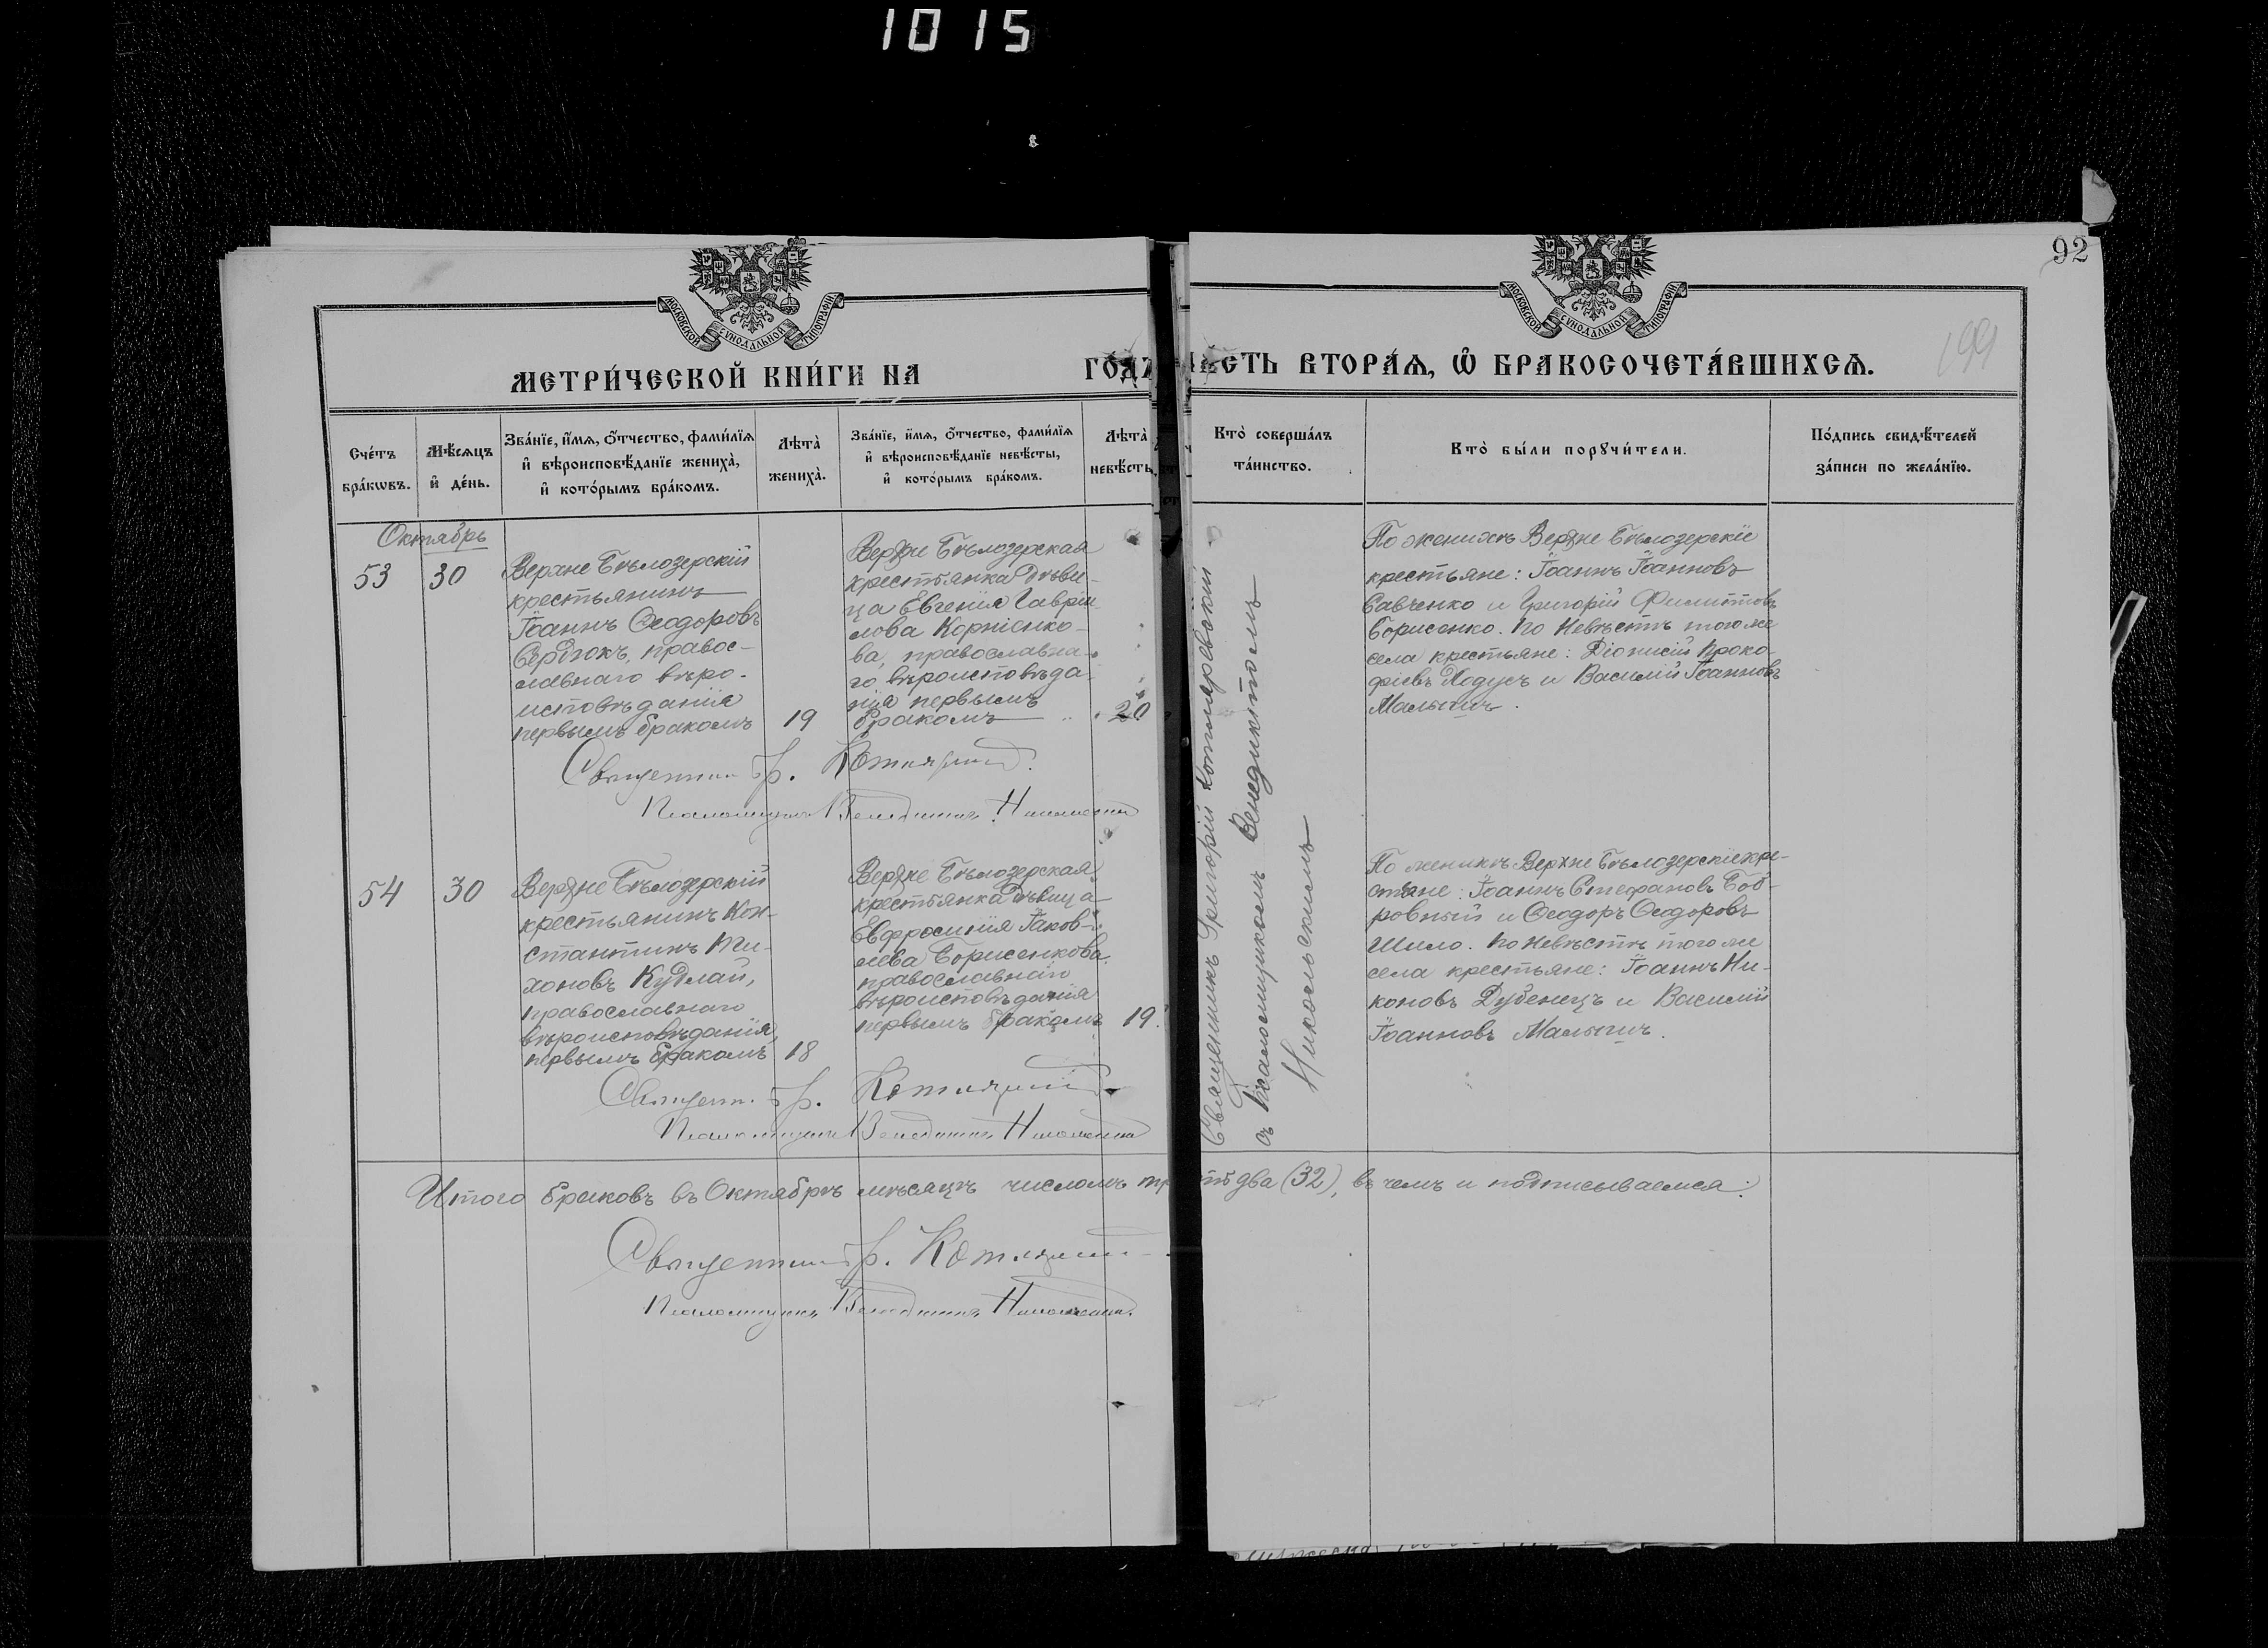 1015
92
199
МОСКОВСКОЙ СѴНОДАЛЬНОЙ ТИПОГРАФІИ
МОСКОВСКОЙ СѴНОДАЛЬНОЙ ТИПОГРАФІИ
МЕТРИ́ЧЕСКОЙ КНИ́ГИ НА ГО́ДЪ
ЧА́СТЬ ВТОРА́Ѧ, Ѡ҆ БРАКОСОЧЕТА́ВШИХСѦ.
Сче́тъ бра́кѡвъ.
Мѣ́сѧцъ и҆ де́нь.
Зва́нїе, и҆́мѧ, ѻ҆́тчество, фами́лїѧ
и҆ вѣроисповѣ́данїе жениха̀,
и҆ кото́рымъ бра́комъ.
Лѣта̀
жениха̀.
Зва́нїе, и҆́мѧ, ѻ҆́тчество, фами́лїѧ
и҆ вѣроисповѣ́данїе невѣ́сты,
и҆ кото́рымъ бра́комъ.
Лѣта̀
невѣ́сты
Кто̀ соверша́лъ
та́инство.
Кто̀ бы́ли порꙋчи́тели.
По́дпись свидѣ́телей
за́писи по жела́нїю.
Октябрь
53
30
Верхне Бѣлозерскій
крестьянинъ
Іоаннъ Ѳеодоровъ
Сердюкъ, правос-
лавнаго вѣро-
исповѣданія
первымъ бракомъ
19
Верхне Бѣлозерская
крестьянка дѣви-
ца Евгенія Гаврии-
лова Корніенко-
ва, православна-
го вѣроисповѣда-
нія первымъ
бракомъ
20
Священникъ Гр. Котляревскій
Псаломщикъ Венедиктъ Никольскій
По женихѣ Верхне Бѣлозерскіе
крестьяне: Іоаннъ Іоанновъ
Савченко и Григорій Филипповъ
Борисенко. По невѣстѣ того же
села крестьяне: Діонисій Проко-
фіевъ Ходусъ и Василій Іоанновъ
Малыгинъ.
Священникъ Григорій Котляревскій
съ Псаломщикомъ Венедиктомъ
Никольскимъ
54
30
Верхне Бѣлозерскій
крестьянинъ Кон-
стантинъ Ти-
хоновъ Кудлай,
православнаго
вѣроисповѣданія,
первымъ бракомъ
18
Верхне Бѣлозерская
крестьянка дѣвица
Евфросинія Іаков-
лева Борисенкова,
православнаго
вѣроисповѣданія
первымъ бракомъ
19.
Священн. Гр. Котляревскій
Псаломщикъ Венедиктъ Никольскій
По женихѣ Верхне Бѣлозерскіе кре-
стьяне: Іоаннъ Стефановъ Боб-
ровный и Ѳеодоръ Ѳеодоровъ
Шило. По невѣстѣ того же
села крестьяне: Іоаннъ Ни-
коновъ Дубенецъ и Василій
Іоанновъ Малыгинъ.
Итого браковъ въ Октябрѣ мѣсяцѣ числомъ тридцать два (32), въ чемъ и подписываемся:
Священникъ Гр. Котляревскій
Псаломщикъ Венедиктъ Никольскій.